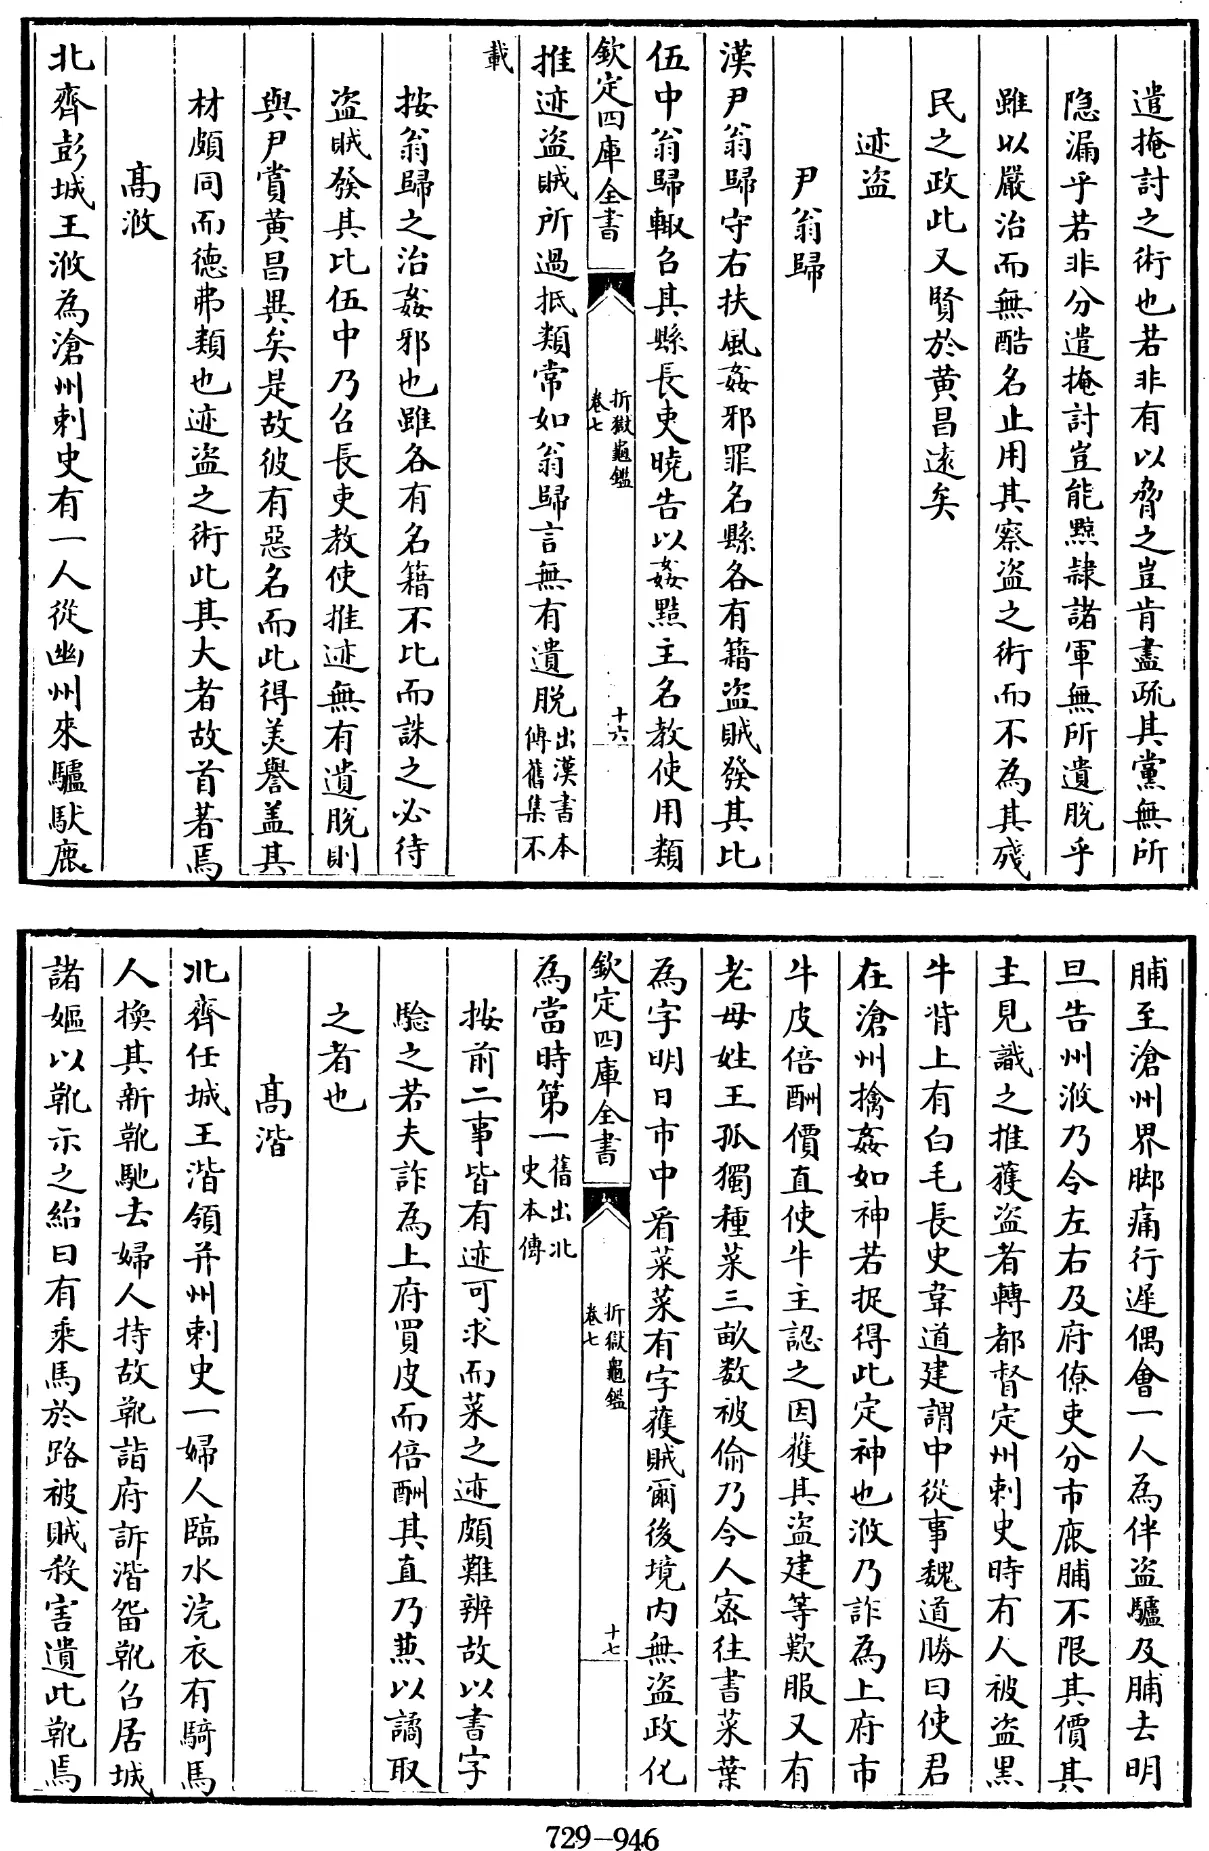 遣掩討之術也若非有以脅之豈肯盡疏其黨無所
隱漏乎若非分遣掩討豈能㸃隷諸軍無所遺脱乎
雖以嚴治而無酷名止用其察盜之術而不為其殘
民之政此又賢於黄昌逺矣
迹盜
尹翁歸
漢尹翁歸守右扶風姦邪罪名縣各有籍盜賊發其比
伍中翁歸輙召其縣長吏曉告以姦黠主名教使用類
欽定四庫全書
折獄龜鑑
卷七
十六
推迹盜賊所過抵類常如翁歸言無有遺脱出漢書本
傳舊集不
載
按翁歸之治姦邪也雖各有名籍不比而誅之必待
盜賊發其比伍中乃召長吏教使推迹無有遺脱則
與尹賞黄昌異矣是故彼有惡名而此得美譽盖其
材頗同而德弗類也迹盜之術此其大者故首著焉
髙浟
北齊彭城王浟為滄州刺史有一人從幽州來驢䭾鹿
脯至滄州界脚痛行遲偶會一人為伴盜驢及脯去明
旦告州浟乃令左右及府僚吏分市鹿脯不限其價其
主見識之推獲盜者轉都督定州刺史時有人被盜黒
牛背上有白毛長史韋道建謂中從事魏道勝曰使君
在滄州擒姦如神若捉得此定神也浟乃詐為上府市
牛皮倍酬價直使牛主認之因獲其盜建等歎服又有
老母姓王孤獨種菜三畝数被偷乃令人宻往書菜葉
為字明日市中看菜菜有字獲賊爾後境内無盜政化
欽定四庫全書
折獄龜鑑
卷七
十七
為當時第一舊出北
史本傳
按前二事皆有迹可求而菜之迹頗難辨故以書字
驗之若夫詐為上府買皮而倍酬其直乃兼以譎取
之者也
髙湝
北齊任城王湝領并州刺史一婦人臨水浣衣有騎馬
人換其新靴馳去婦人持故靴詣府訴湝留靴召居城
諸嫗以靴示之紿曰有乘馬於路被賊殺害遺此靴焉
729-946